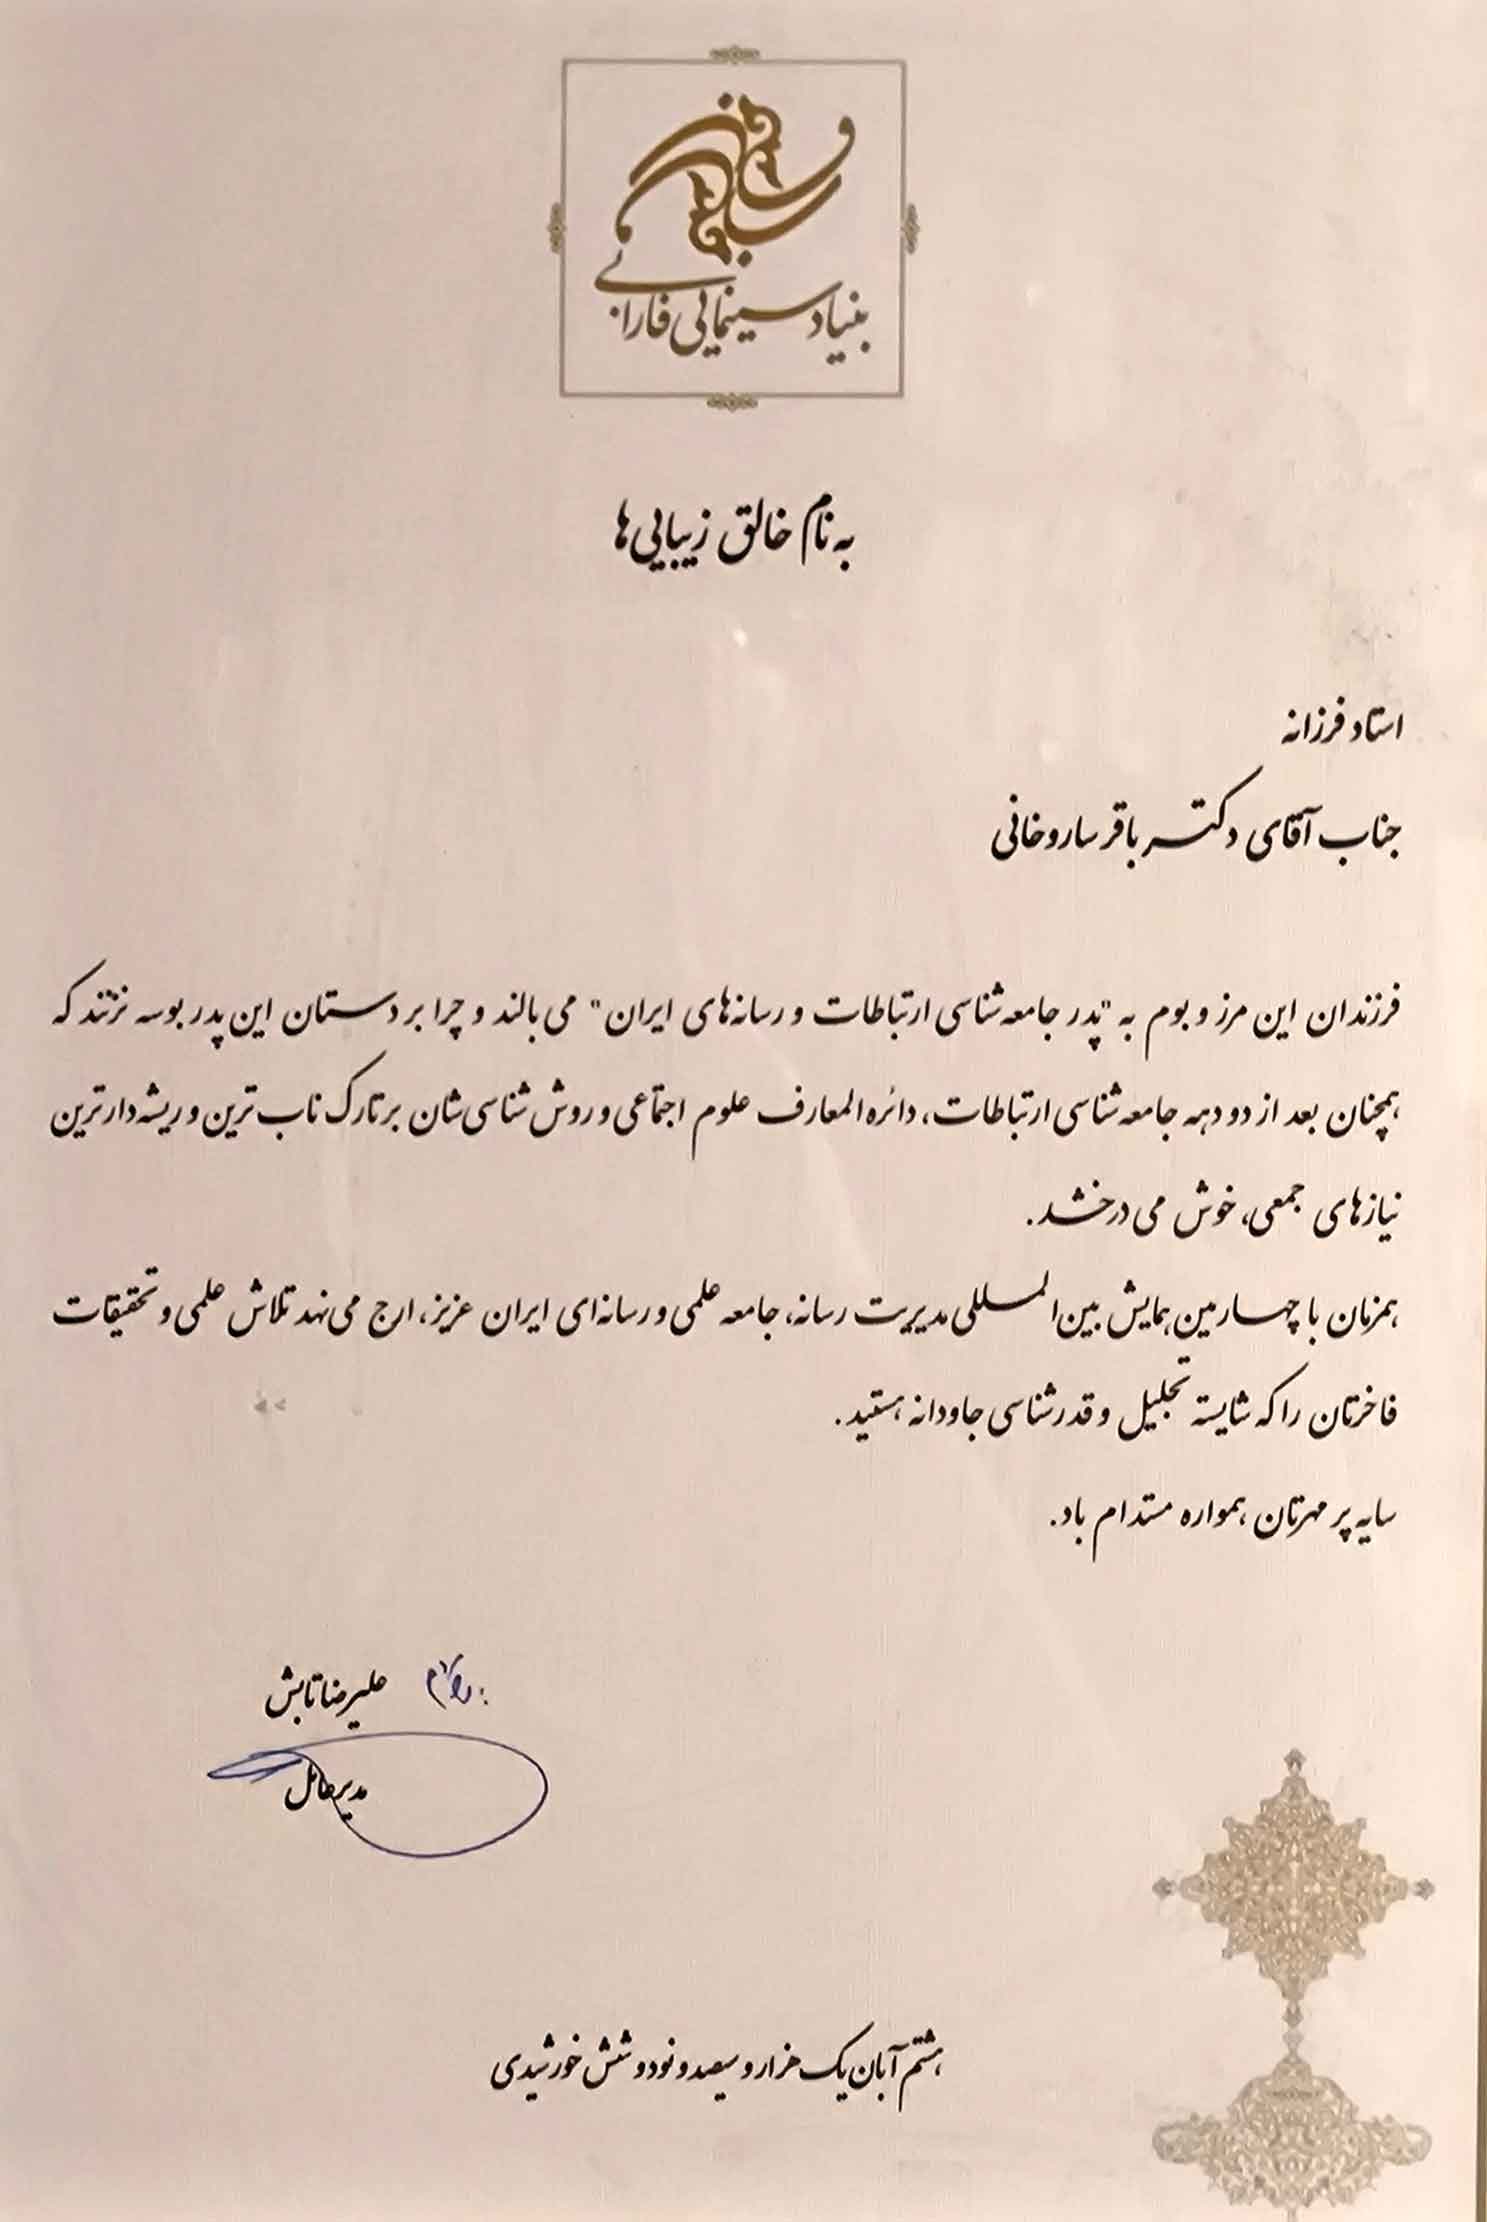 بنیاد سینمایی فارابی
به نام خالق زیبایی ها
استاد فرزانه
جناب آقای دکتر باقر ساروخانی
فرزندان این مرز و بوم به "پدر جامعه شناسی ارتباطات و رسانه های ایران" می بالند و چرا بر دستان این پدر بوسه نزنند که
همچنان بعد از دو دهه جامعه شناسی ارتباطات، دائره المعارف علوم اجتماعی و روش شناسی شان بر تارک ناب ترین و ریشه دارترین
نیازهای جمعی، خوش می درخشد.
همزمان با چهارمین همایش بین المللی مدیریت رسانه، جامعه علمی و رسانه ای ایران عزیز، ارج می نهد تلاش علمی و تحقیقات
فاخرتان را که شایسته تجلیل و قدرشناسی جاودانه هستید.
سایه پر مهرتان همواره مستدام باد.
علیرضا تابش
مدیرعامل
هشتم آبان یک هزار و سیصد و نود و شش خورشیدی